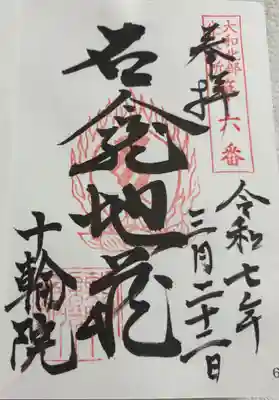 大和北部
第六番
奉拝
令和七年
三月二十三日
石龕地蔵
十輪院
6